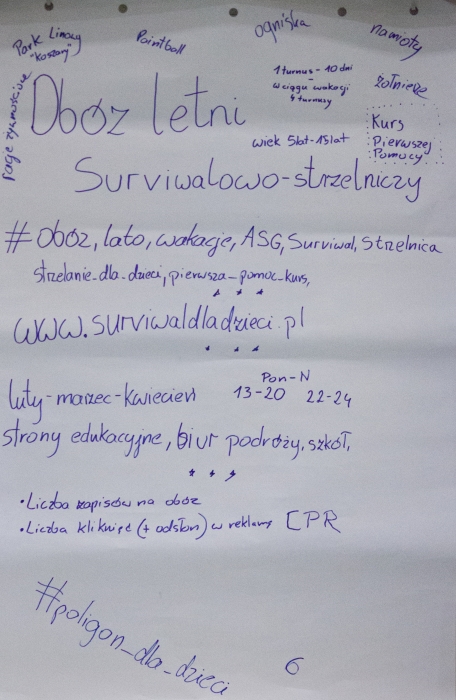 Park Linowy
"Koszary"
Paintball
ogniska
namioty
żołnierz
1 turnus - 10 dni
w ciągu wakacji
4 turnusy
Obóz letni
wiek 5lat-15lat
Kurs
Pierwszej
Pomocy
Surviwalowo-strzelniczy
#obóz, lato, wakacje, ASG, Surviwal, Strzelnica
strzelanie_dla_dzieci, pierwsza_pomoc_kurs,
www.surviwaldladzieci.pl
luty-marzec-kwiecień
Pon-N
13-20 22-24
strony edukacyjne, biur podróży, szkół,
•Liczba zapisów na obóz
•Liczba kliknięć (+ odsłon) w reklamy CPR
#poligon_dla_dzieci
6